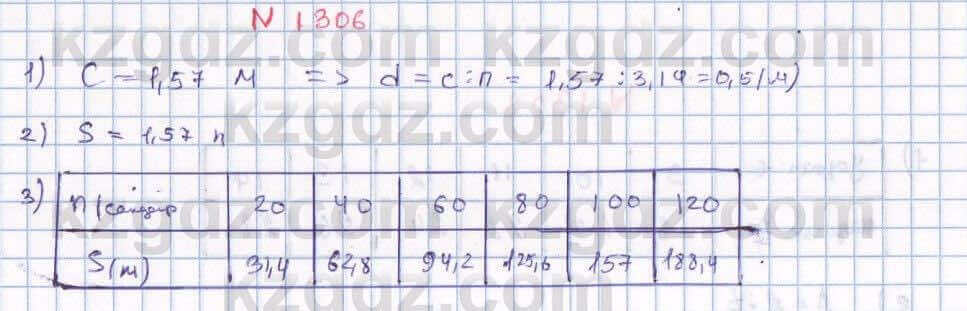 N 1306
1) C = 1,57 м => d = c : π = 1,57 : 3,14 = 0,5 (м)
2) S = 1,57 n
3) n
20 40 60 80 100 120
S (m) 31,4 62,8 94,2 125,6 157 188,4
kzgdz.com kzgdz.com
kzgdz.com kzgdz.com
kzgdz.com kzgdz.com
kzgdz.com kzgdz.com